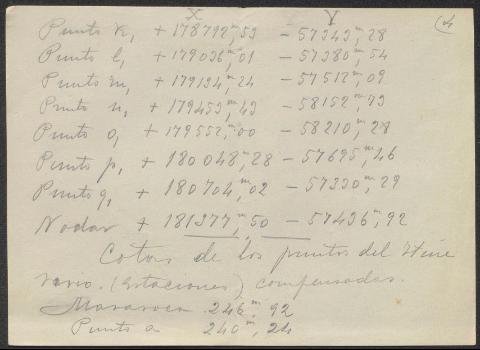 X Y
Punto k₁ + 178792,ᵐ53 - 57343,ᵐ28
Punto l₁ + 179036,ᵐ01 - 57380,ᵐ54
Punto m₁ + 179134,ᵐ24 - 57512,ᵐ09
Punto n₁ + 179453,ᵐ43 - 58152,ᵐ73
Punto o₁ + 179552,ᵐ00 - 58210,ᵐ28
Punto p₁ + 180048,ᵐ28 - 57695,ᵐ46
Punto q₁ + 180704,ᵐ02 - 57330,ᵐ29
Nodar + 181377,ᵐ50 - 57436,ᵐ92
Cotas de los puntos del Itine
rario. (Estaciones) compensadas.
246,ᵐ92
Punto a 240,ᵐ24